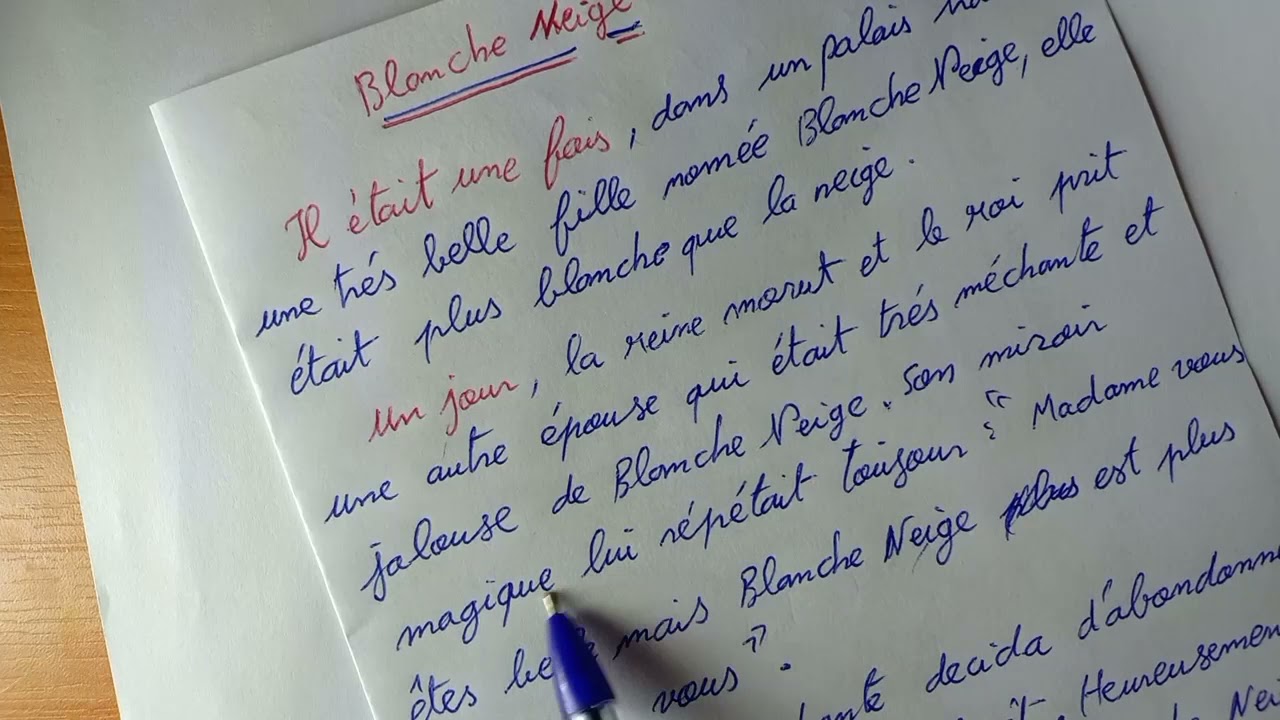 Blanche Neige
Il était une fois, dans un palais
une trés belle fille nomée Blanche Neige, elle
était plus blanche que la neige.
Un jour, la reine morut et le roi prit
une autre épouse qui était trés méchante et
jalouse de Blanche Neige. Son miroir
magique lui répétait toujour : " Madame vous
êtes mais Blanche Neige est plus
vous ".
decida d'abandonne
Heureusemen